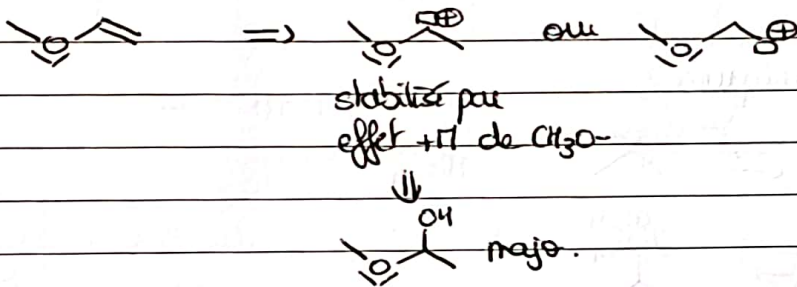 O => O ⊕ ou O ⊕
stabilisé par
effet +M de CH3O-
⇓
OH
O majo.